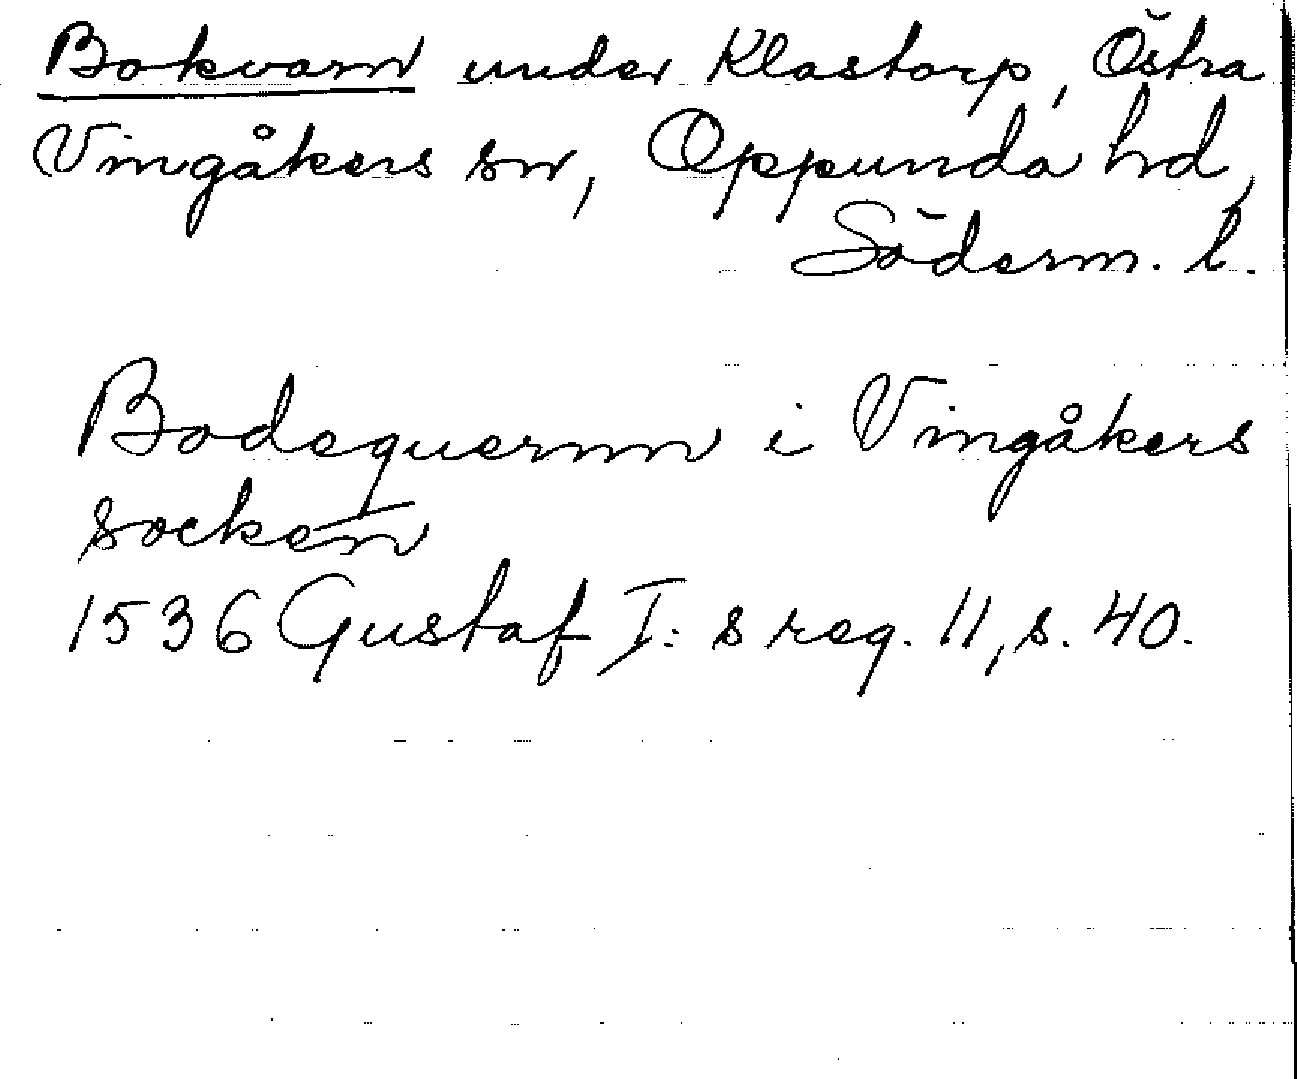 Bokvarn under Klastorp, Östra
Vingåkers sn, Oppunda hd,
Söderm. l.
Bodequernn i Vingåkers
socken
1536 Gustaf I: s reg. 11, s. 40.